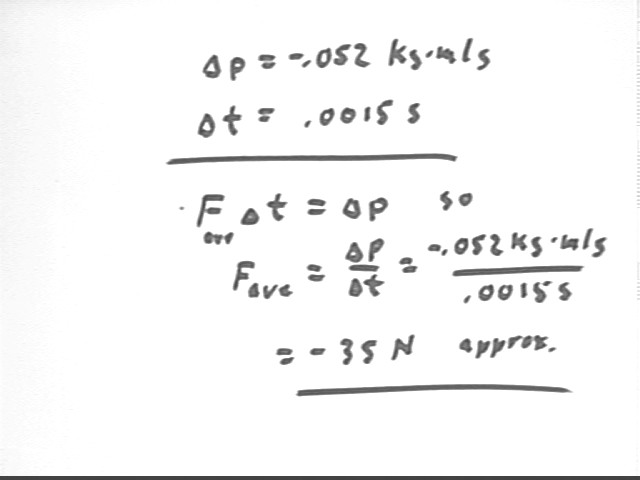 Δp = -.052 kg·m/s
Δt = .0015 s
F ave Δt = Δp so
F ave = Δp/Δt = -.052 kg·m/s / .0015 s
= -35 N approx.